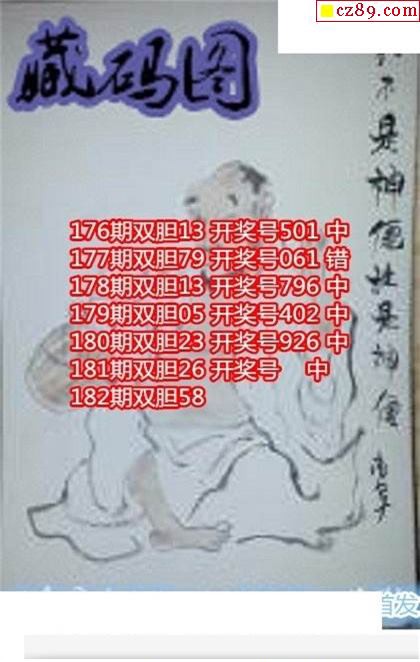 cz89.com
藏码图
176期双胆13 开奖号501 中
177期双胆79 开奖号061 错
178期双胆13 开奖号796 中
179期双胆05 开奖号402 中
180期双胆23 开奖号926 中
181期双胆26 开奖号 中
182期双胆58
不是神僊
是神僊
首发